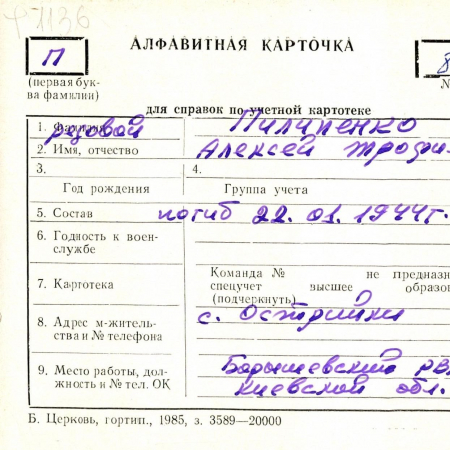 Ф 7136
АЛФАВИТНАЯ КАРТОЧКА
П
8
(первая бук-
ва фамилии)
№
для справок по учетной картотеке
1. Фамилия рядовой Пилипенко
2. Имя, отчество Алексей Трофи
3. 4.
Год рождения Группа учета
5. Состав погиб 22.01.1944г.
6. Годность к воен-
службе
7. Картотека
Команда № не предназн
спецучет высшее образо
(подчеркнуть)
8. Адрес м-житель-
ства и № телефона
с. Острийки
9. Место работы, дол-
жность и № тел. ОК
Барышевский РВ
Киевской обл.
Б. Церковь, гортип., 1985, з. 3589—20000